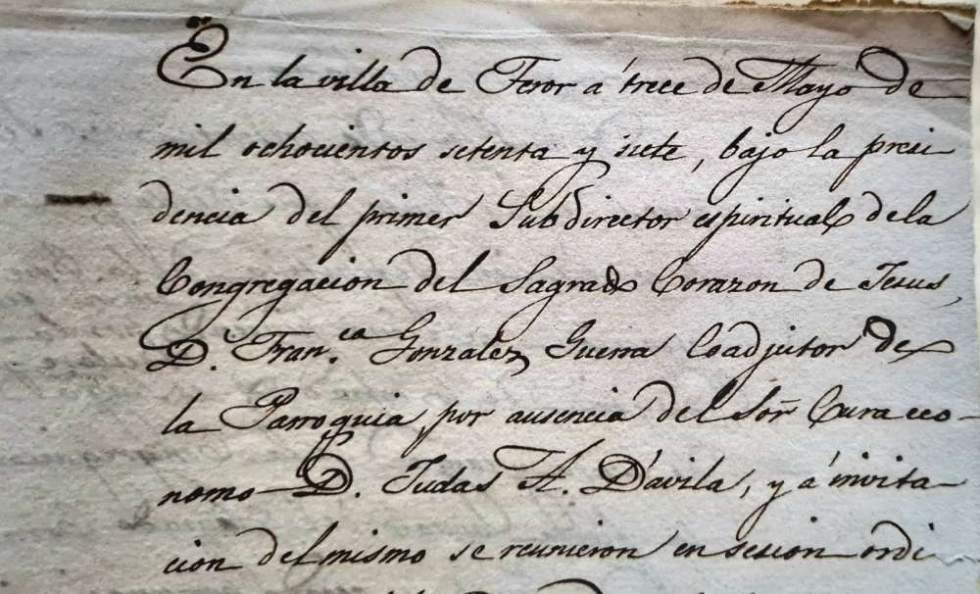 En la villa de Teror á trece de Mayo de
mil ochocientos setenta y siete, bajo la presi
dencia del primer Subdirector espiritual de la
Congregacion del Sagrado Corazon de Jesus,
D. Fran.ca Gonzalez Guerra Coadjutor de
la Parroquia por ausencia del Sor Cura eco-
nomo D. Judas A. Dávila, y á invita
cion del mismo se reunieron en sesion ordi